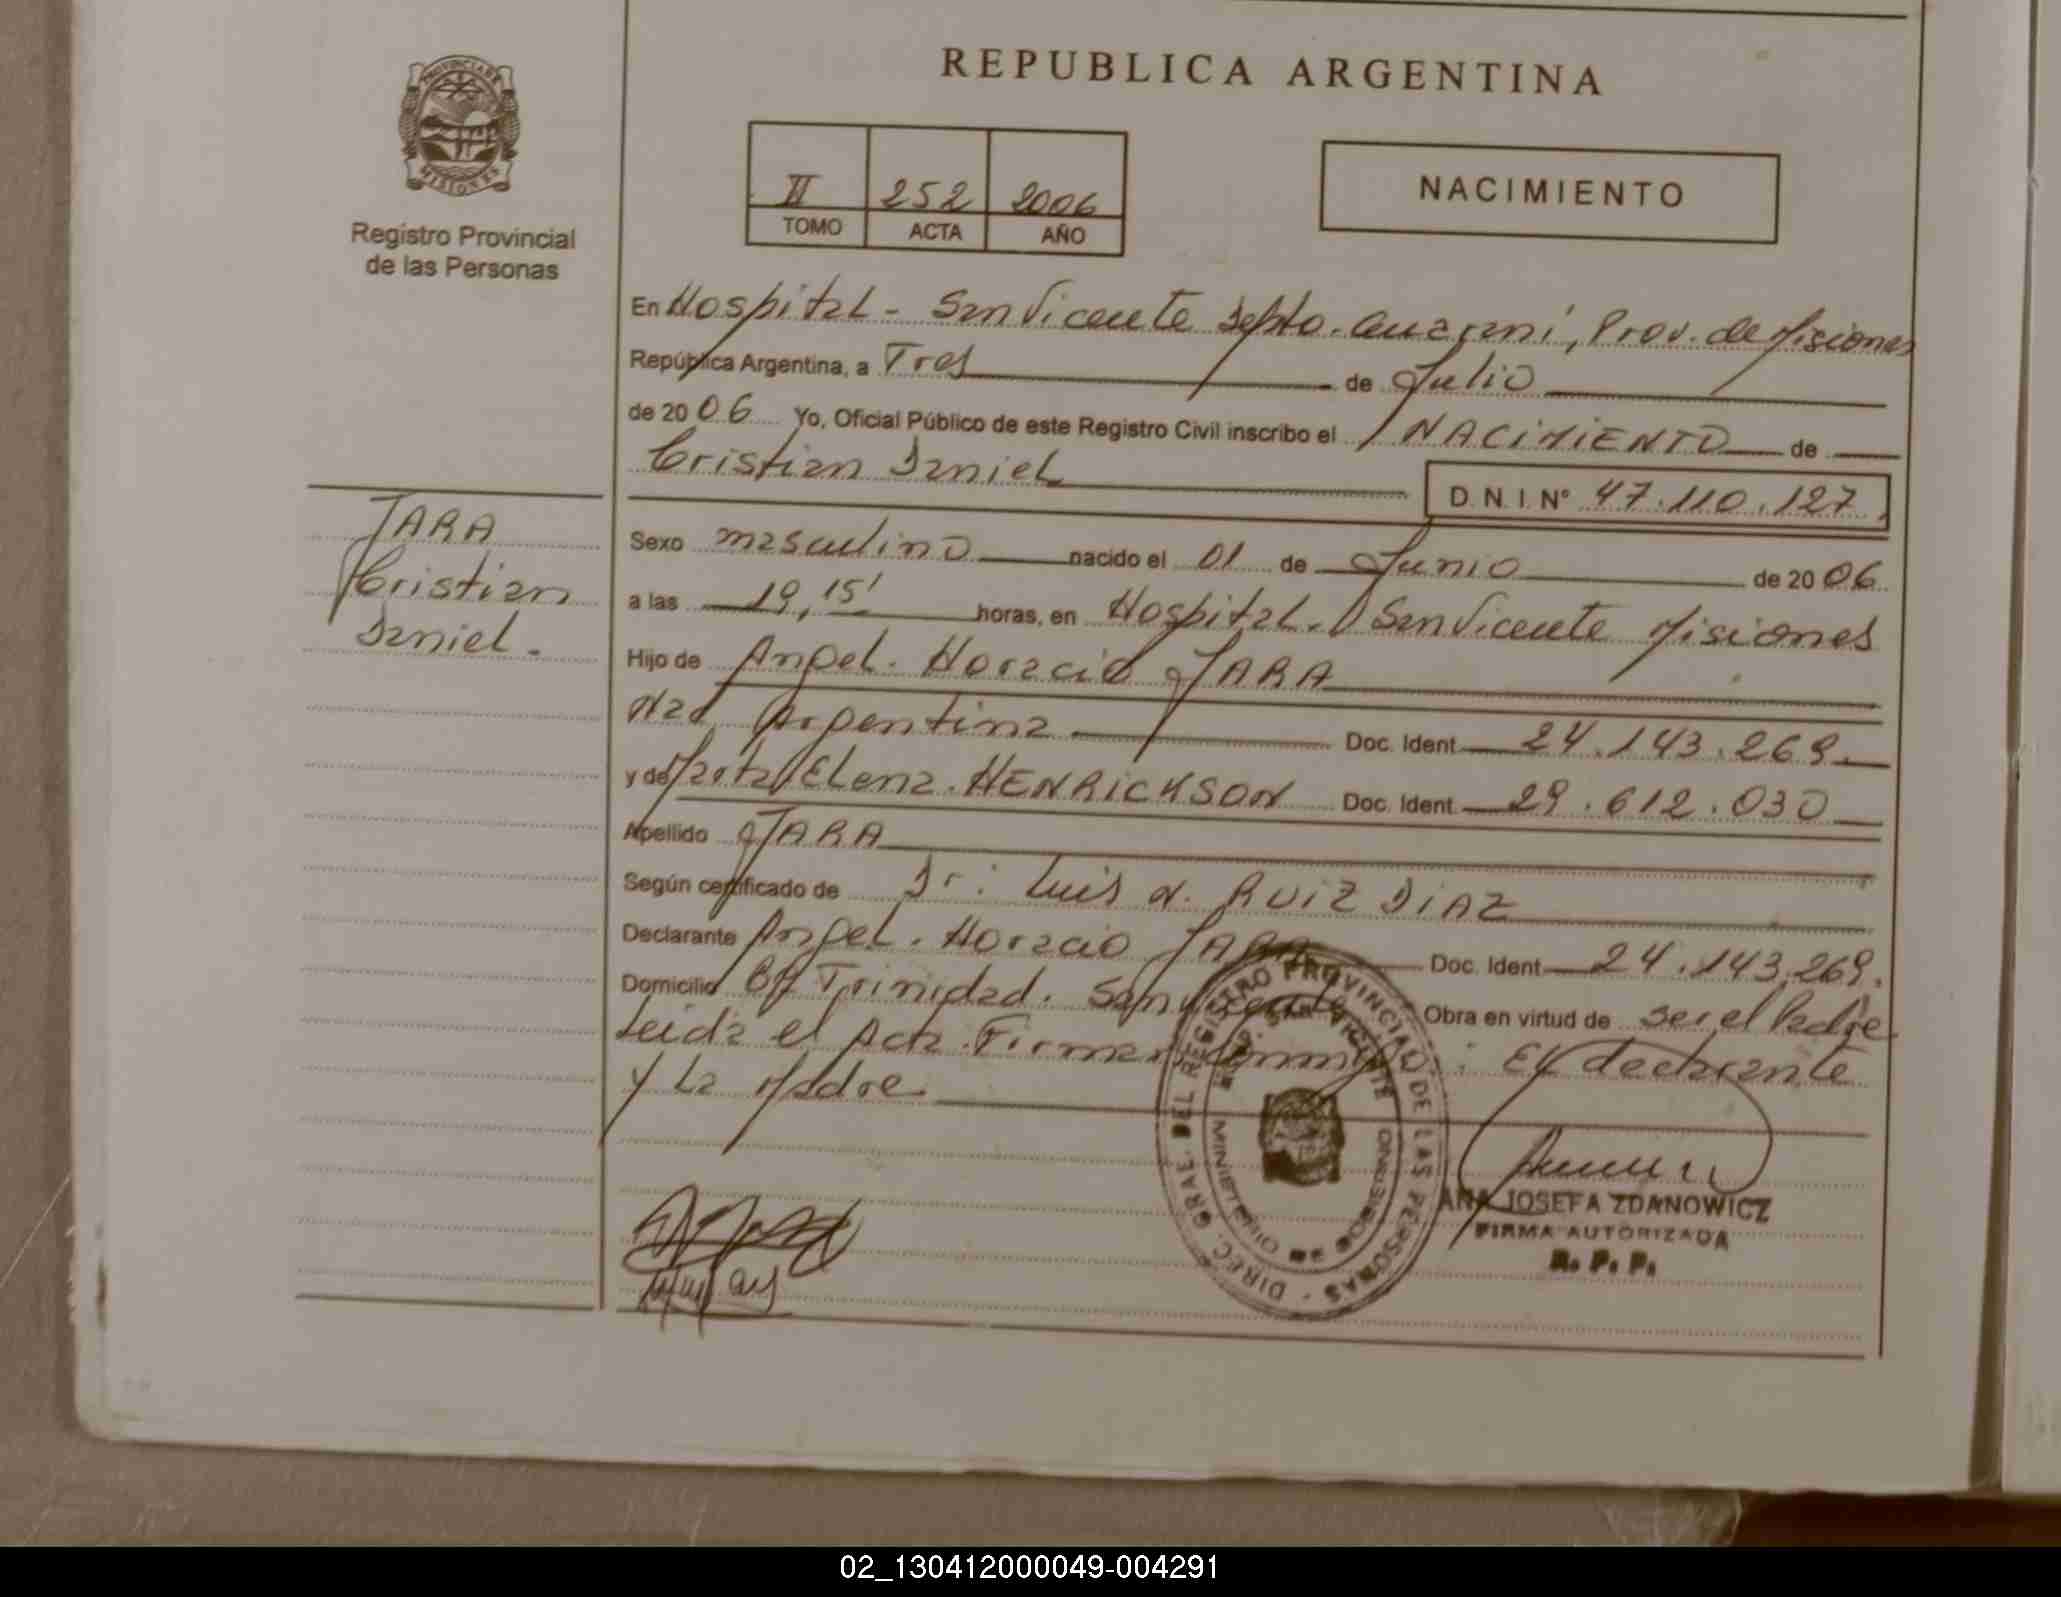 REPUBLICA ARGENTINA
PROVINCIA DE
MISIONES
Registro Provincial
de las Personas
II 252 2006
TOMO ACTA AÑO
NACIMIENTO
En Hospital - San Vicente Depto. Guaraní, Prov. de Misiones
República Argentina, a Tres de Julio
de 2006 Yo, Oficial Público de este Registro Civil inscribo el NACIMIENTO de
Cristian Daniel
D. N. I. Nº 47.110.127.
JARA
Cristian
Daniel.
Sexo masculino nacido el 01 de Junio de 2006
a las 19,15' horas, en Hospital. San Vicente Misiones
Hijo de Angel. Horacio JARA
Nad Argentina Doc. Ident. 24.143.269.
y de Marta Elena. HENRICKSON Doc. Ident. 29.612.030
Apellido JARA
Según certificado de Dr: Luis A. RUIZ DIAZ
Declarante Angel. Horacio JARA Doc. Ident. 24.143.269.
Domicilio Bº Trinidad. San Vicente Obra en virtud de ser el Padre
Leida el Acta. Firman conmigo: El declarante
y La Madre
DIREC. GRAL. DEL REGISTRO PROVINCIAL DE LAS PERSONAS
MINISTERIO DE GOBIERNO
ANA JOSEFA ZDANOWICZ
FIRMA AUTORIZADA
R. P. P.
02_130412000049-004291